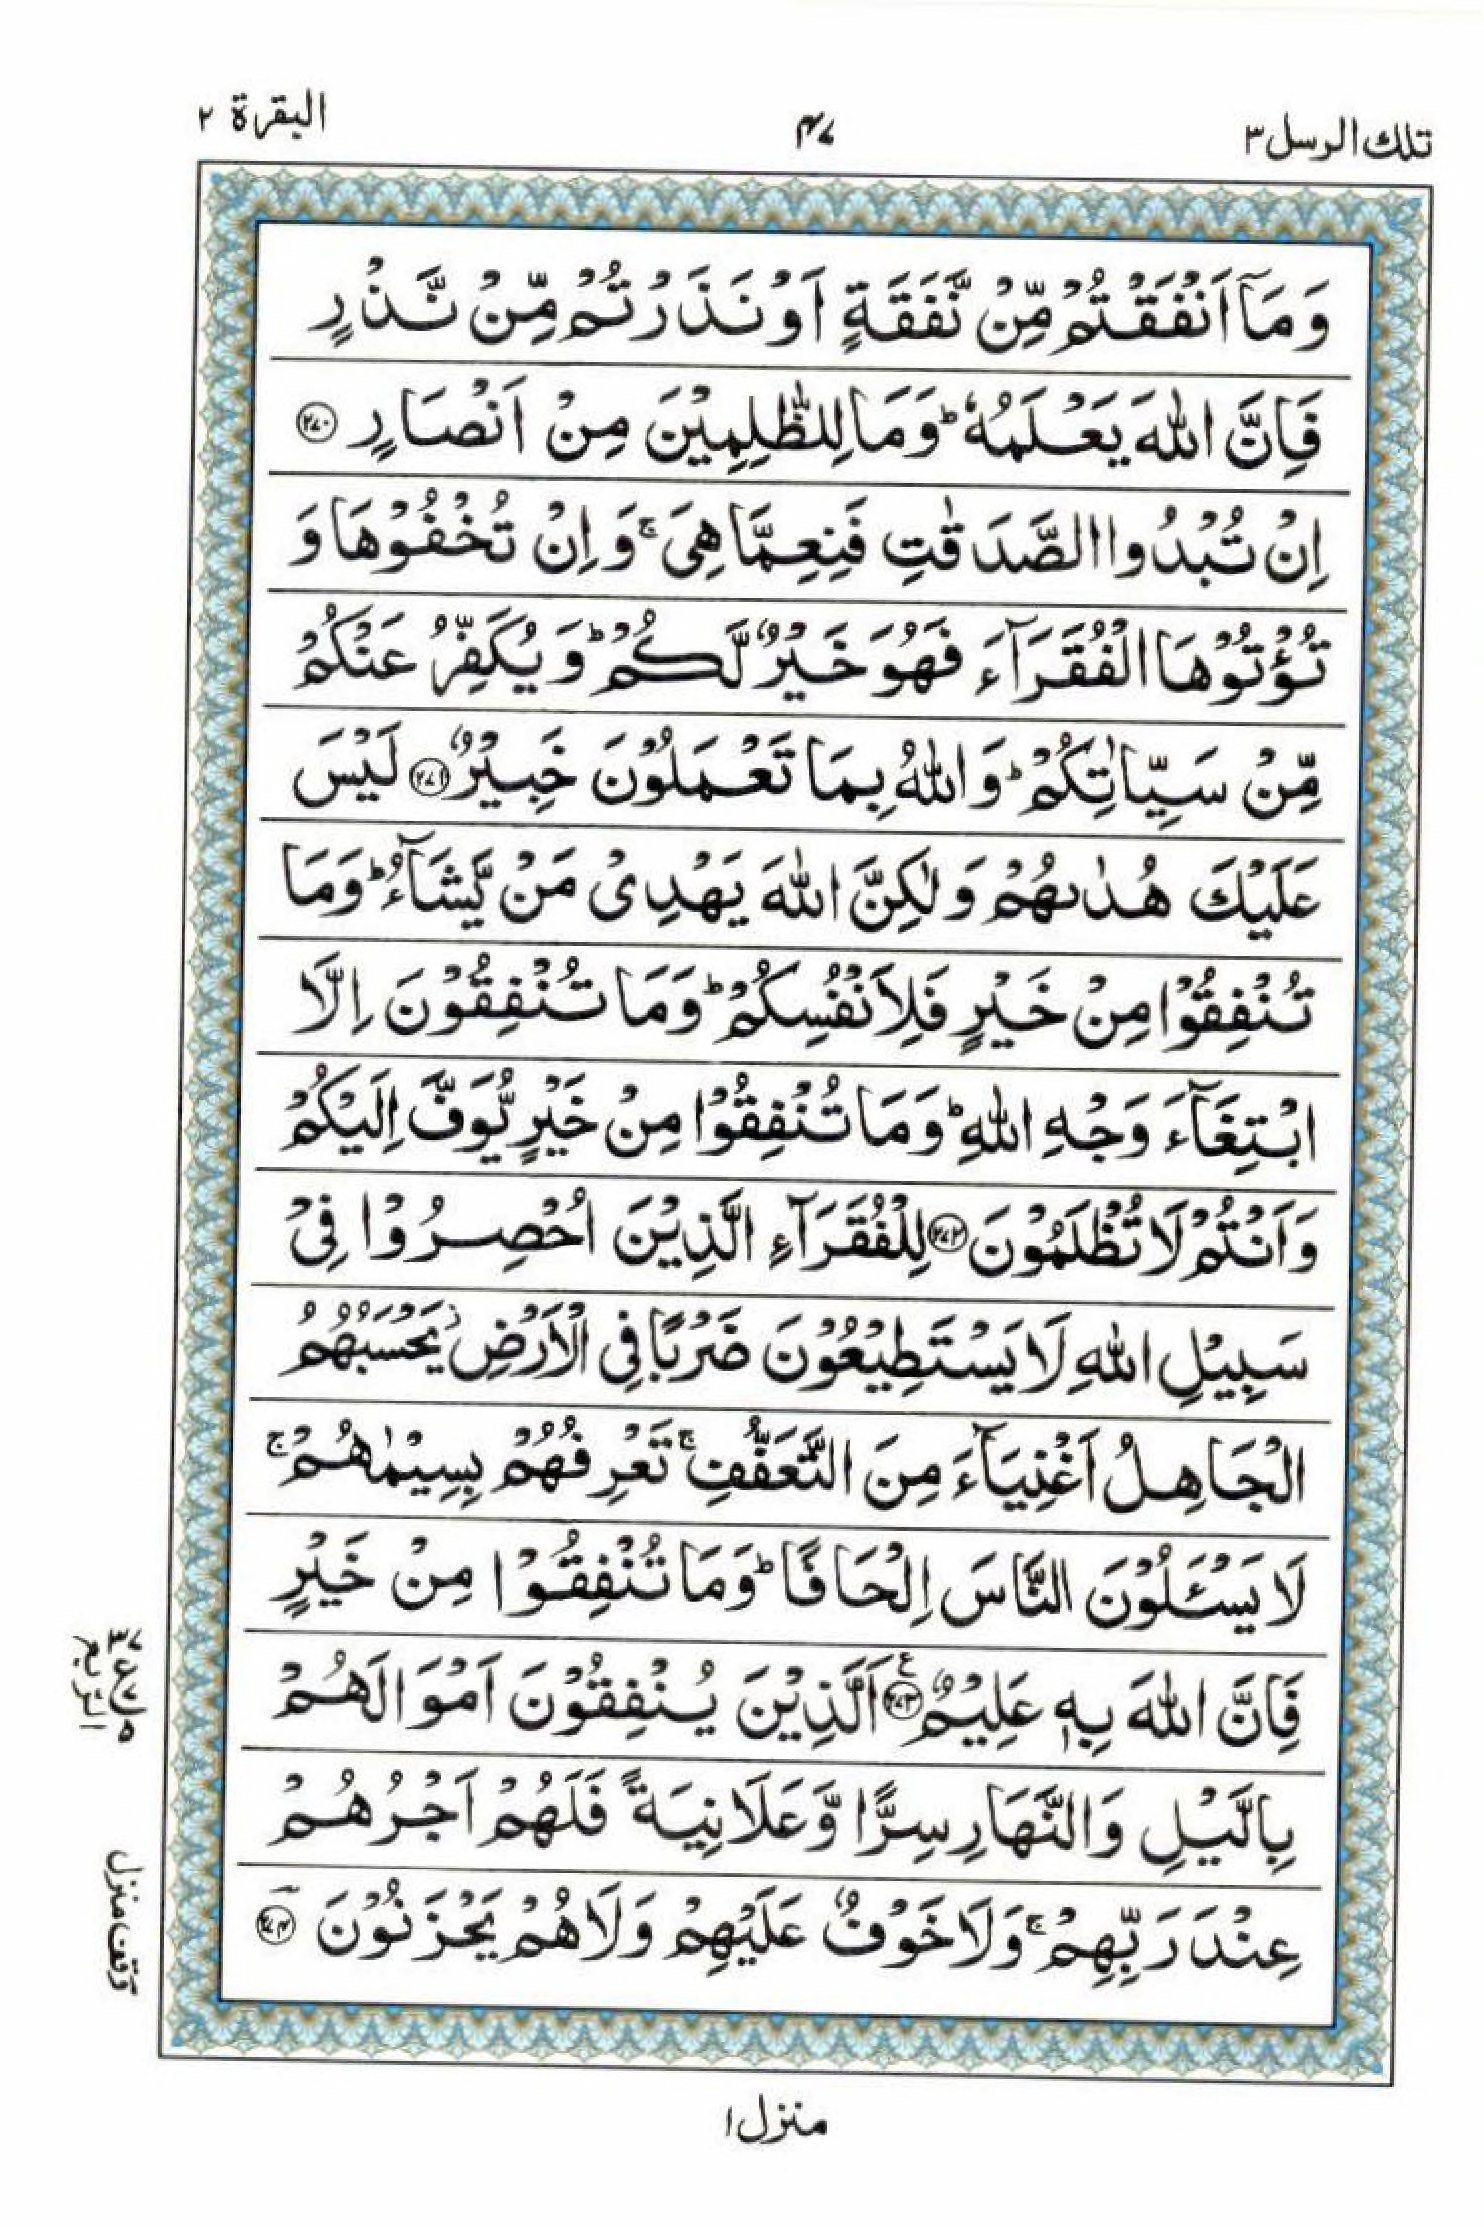 تلك الرسل ٣
٤٧
البقرة ٢
وَمَاۤ اَنْفَقْتُمْ مِّنْ نَّفَقَةٍ اَوْ نَذَرْتُمْ مِّنْ نَّذْرٍ
فَاِنَّ اللّٰهَ يَعْلَمُهٗ ؕ وَمَا لِلظّٰلِمِيْنَ مِنْ اَنْصَارٍ ﴿۲۷۰﴾
اِنْ تُبْدُوا الصَّدَقٰتِ فَنِعِمَّا هِىَ ۚ وَاِنْ تُخْفُوْهَا وَ
تُؤْتُوْهَا الْفُقَرَآءَ فَهُوَ خَيْرٌ لَّكُمْ ؕ وَيُكَفِّرُ عَنْكُمْ
مِّنْ سَيِّاٰتِكُمْ ؕ وَاللّٰهُ بِمَا تَعْمَلُوْنَ خَبِيْرٌ ﴿۲۷۱﴾ لَيْسَ
عَلَيْكَ هُدٰٮهُمْ وَلٰكِنَّ اللّٰهَ يَهْدِىْ مَنْ يَّشَآءُ ؕ وَمَا
تُنْفِقُوْا مِنْ خَيْرٍ فَلِاَنْفُسِكُمْ ؕ وَمَا تُنْفِقُوْنَ اِلَّا
ابْتِغَآءَ وَجْهِ اللّٰهِ ؕ وَمَا تُنْفِقُوْا مِنْ خَيْرٍ يُّوَفَّ اِلَيْكُمْ
وَاَنْتُمْ لَا تُظْلَمُوْنَ ﴿۲۷۲﴾ لِلْفُقَرَآءِ الَّذِيْنَ اُحْصِرُوْا فِىْ
سَبِيْلِ اللّٰهِ لَا يَسْتَطِيْعُوْنَ ضَرْبًا فِى الْاَرْضِ ز يَحْسَبُهُمُ
الْجَاهِلُ اَغْنِيَآءَ مِنَ التَّعَفُّفِ ۚ تَعْرِفُهُمْ بِسِيْمٰهُمْ ۚ
لَا يَسْـَٔلُوْنَ النَّاسَ اِلْحَافًا ؕ وَمَا تُنْفِقُوْا مِنْ خَيْرٍ
فَاِنَّ اللّٰهَ بِهٖ عَلِيْمٌ ﴿۲۷۳﴾ ع اَلَّذِيْنَ يُنْفِقُوْنَ اَمْوَالَهُمْ
بِالَّيْلِ وَالنَّهَارِ سِرًّا وَّعَلَانِيَةً فَلَهُمْ اَجْرُهُمْ
عِنْدَ رَبِّهِمْ ۚ وَلَا خَوْفٌ عَلَيْهِمْ وَلَا هُمْ يَحْزَنُوْنَ ﴿۲۷۴﴾
الربع
وقف منزل
منزل ١